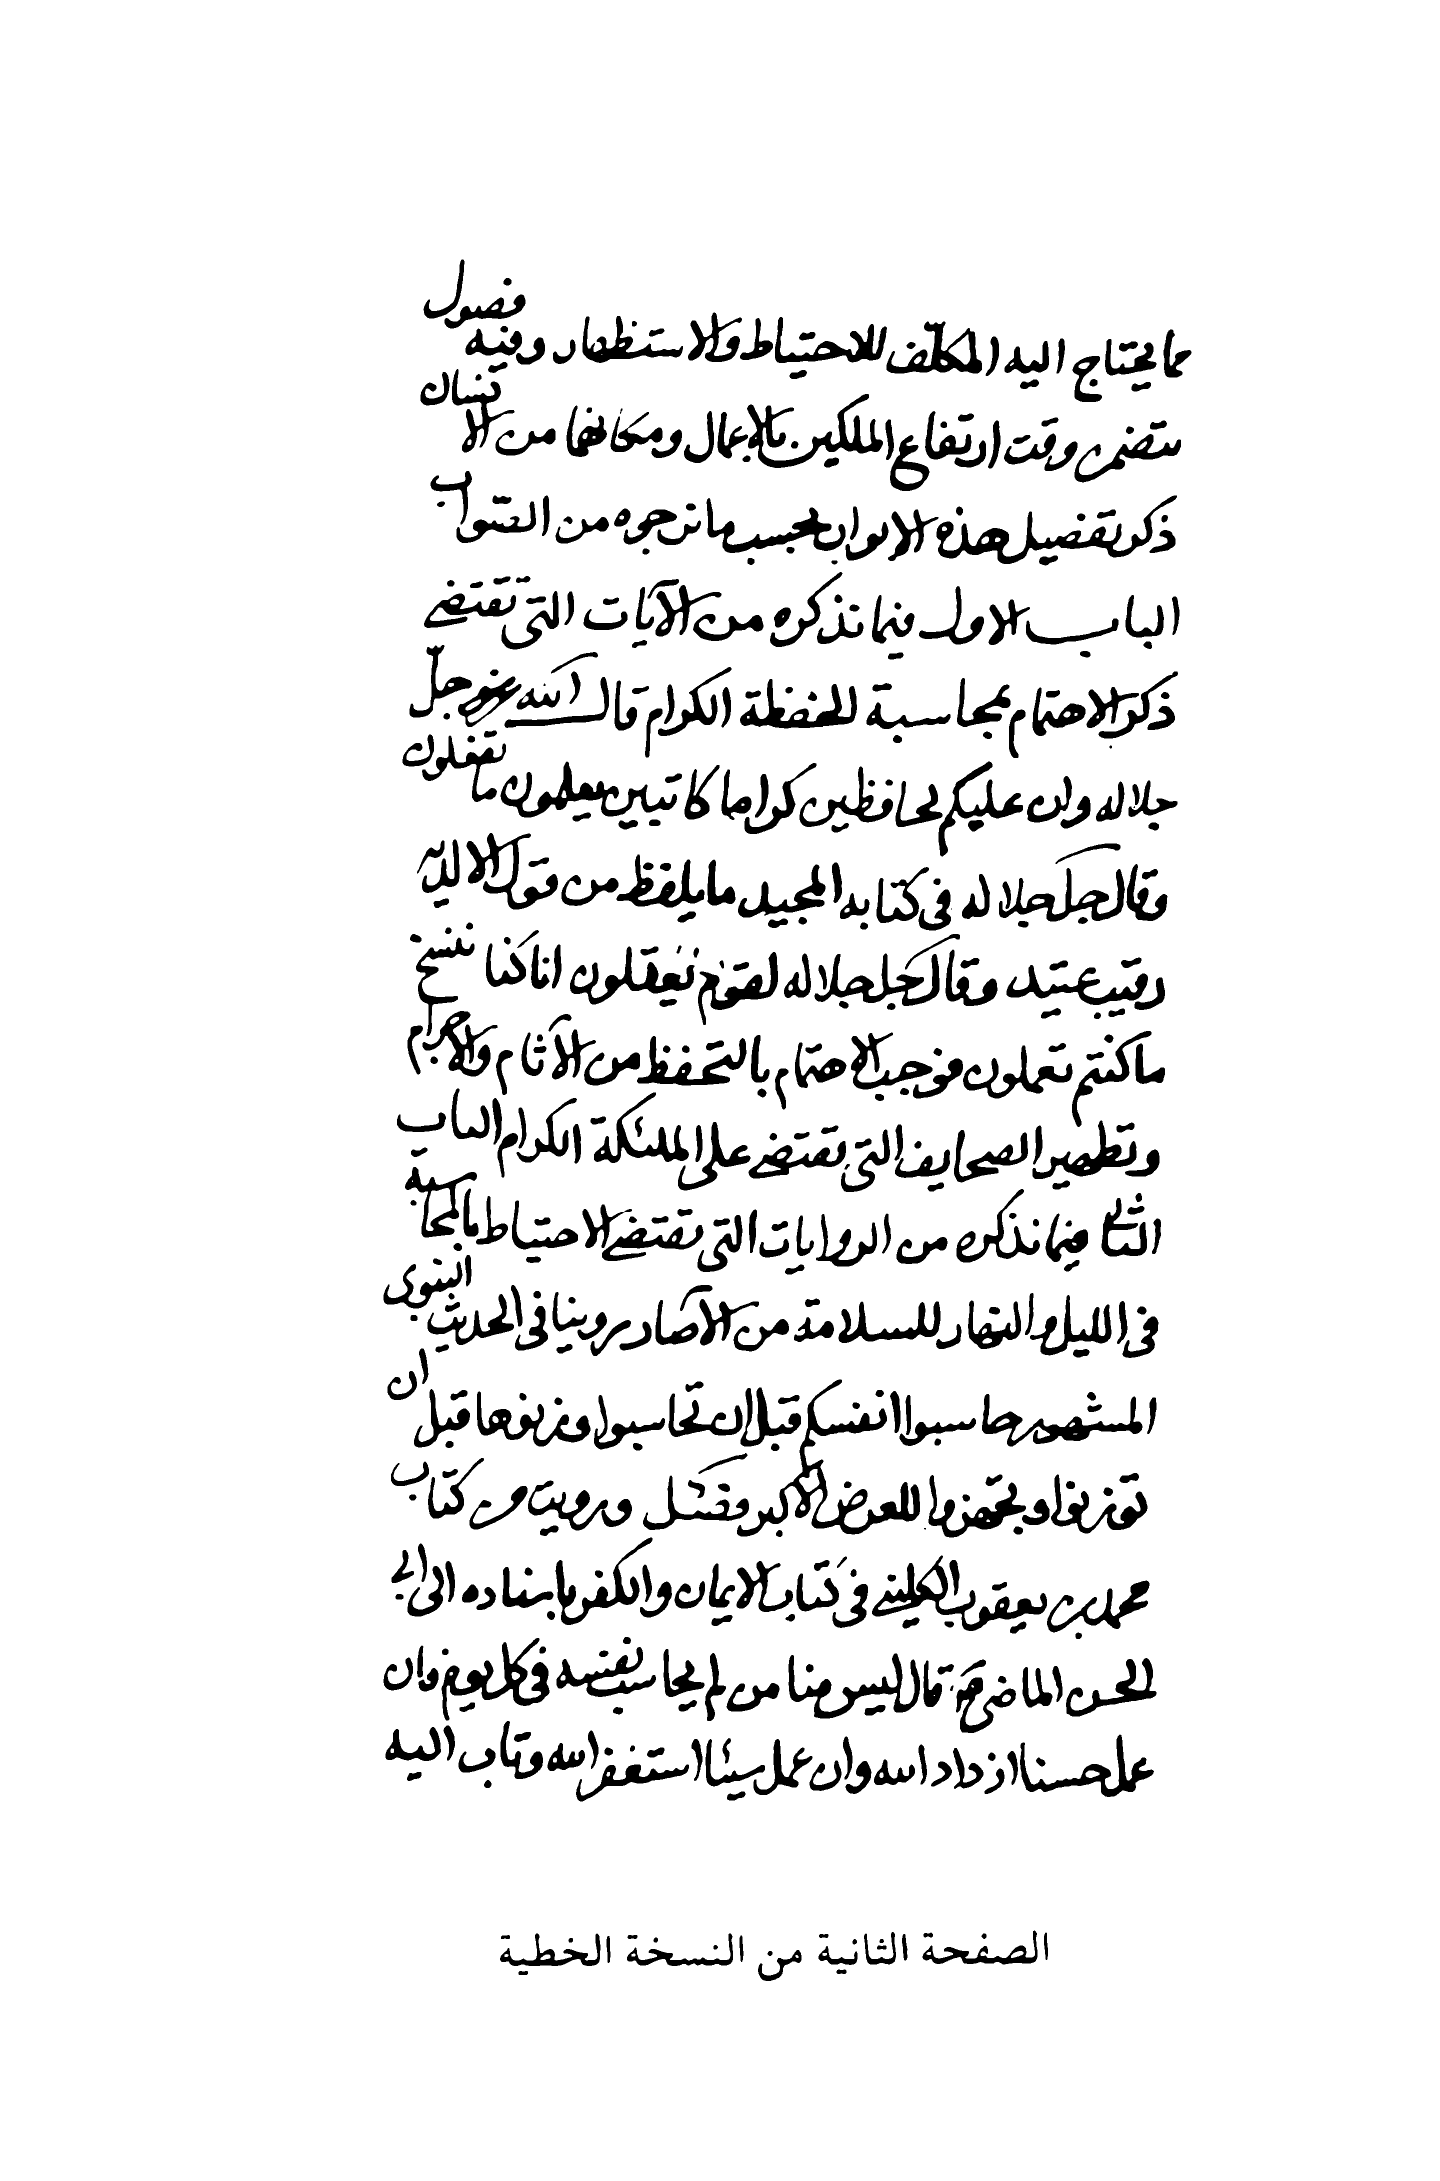 مما يحتاج اليه المكلّف للاحتياط والاستظهار وفيه فصول
يتضمن وقت ارتفاع الملكين بالاعمال ومكانهما من الانسان
ذكر تفصيل هذه الابواب بحسب ما نرجوه من الصّواب
الباب الاول فيما نذكره من الآيات التي تقتضي
ذكر الاهتمام بمحاسبة الحفظة الكرام قال الله عز وجلّ
جلاله وان عليكم لحافظين كراما كاتبين يعلمون ما تفعلون
وقال جل جلاله في كتابه المجيد ما يلفظ من قول الا لديه
رقيب عتيد وقال جل جلاله لقوم يعقلون انا كنا ننسخ
ما كنتم تعملون فوجب الاهتمام بالتحفظ من الآثام والاجرام
وتطهير الصحايف التي تقتضي على الملئكة الكرام الباب
الثاني فيما نذكره من الروايات التي تقتضي الاحتياط بالمحاسبة
في الليل والنهار للسلامة من الآصار روينا في الحديث النبوي
المشهور حاسبوا انفسكم قبل ان تحاسبوا وزنوها قبل ان
توزنوا وتجهزوا للعرض الاكبر ورويت من كتاب
محمد بن يعقوب الكليني في كتاب الايمان والكفر باسناده الى ابي
الحسن الماضي قال ليس منا من لم يحاسب نفسه في كل يوم فان
عمل حسنا ازداد الله وان عمل سيئا استغفر الله وتاب اليه
الصفحة الثانية من النسخة الخطية